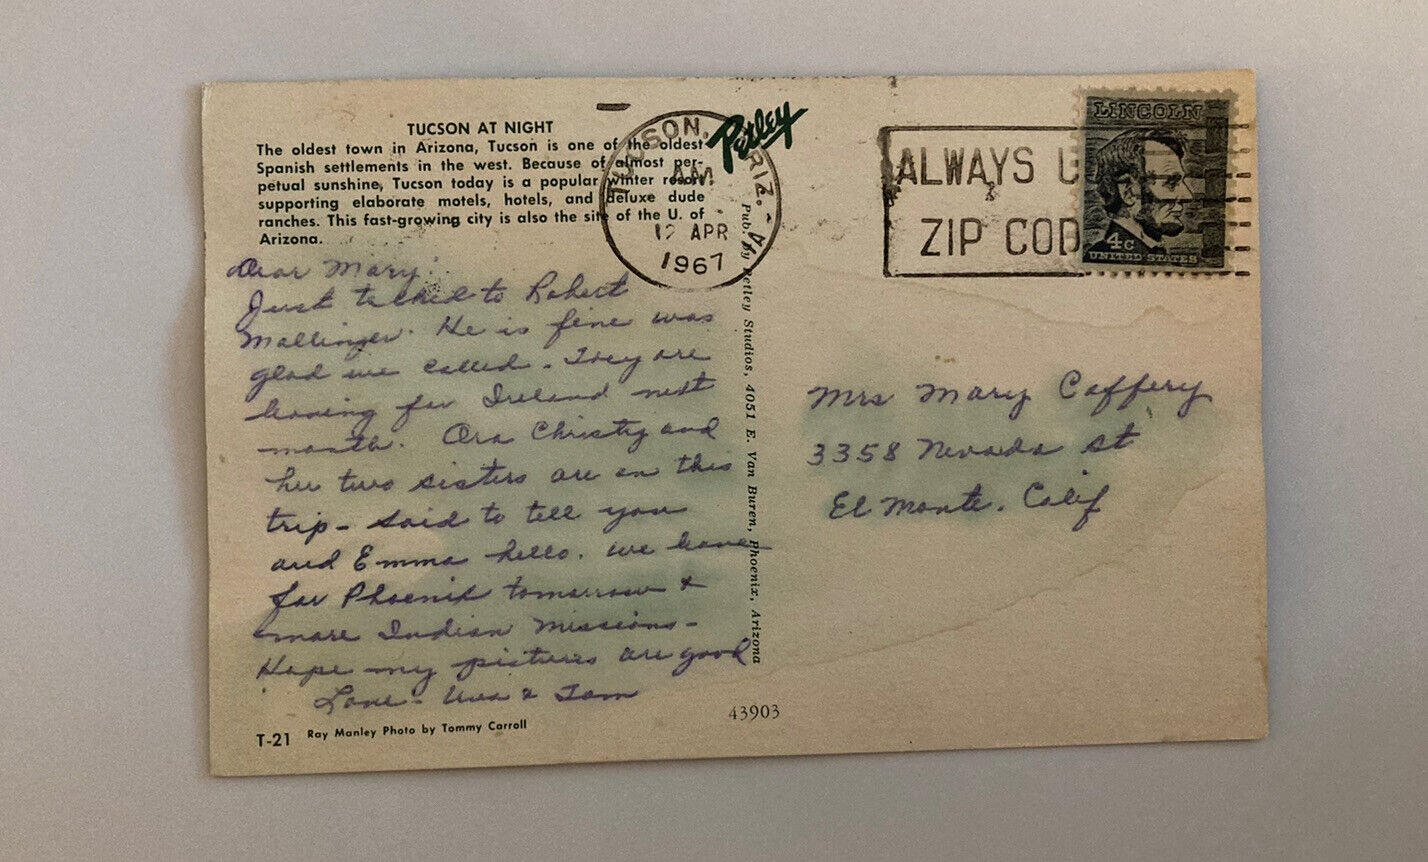 TUCSON AT NIGHT
The oldest town in Arizona, Tucson is one of the oldest
Spanish settlements in the west. Because of almost per-
petual sunshine, Tucson today is a popular winter resort
supporting elaborate motels, hotels, and deluxe dude
ranches. This fast-growing city is also the site of the U. of
Arizona.
Dear Mary:
Just talked to Robert
Mallinger. He is fine was
glad we called. They are
leaving for Ireland next
month. Ora Christy and
her two sisters are on this
trip - said to tell you
and Emma hello. We leave
for Phoenix tomorrow &
more Indian Missions -
Hope my pictures are good
Love - & Tom
T-21 Ray Manley Photo by Tommy Carroll
Petley
Pub. by Petley Studios, 4051 E. Van Buren, Phoenix, Arizona
43903
TUCSON, ARIZ.
AM
12 APR
1967
ALWAYS U
ZIP COD
LINCOLN
4c
UNITED STATES
Mrs Mary Caffery
3358 Nevada St
El Monte, Calif